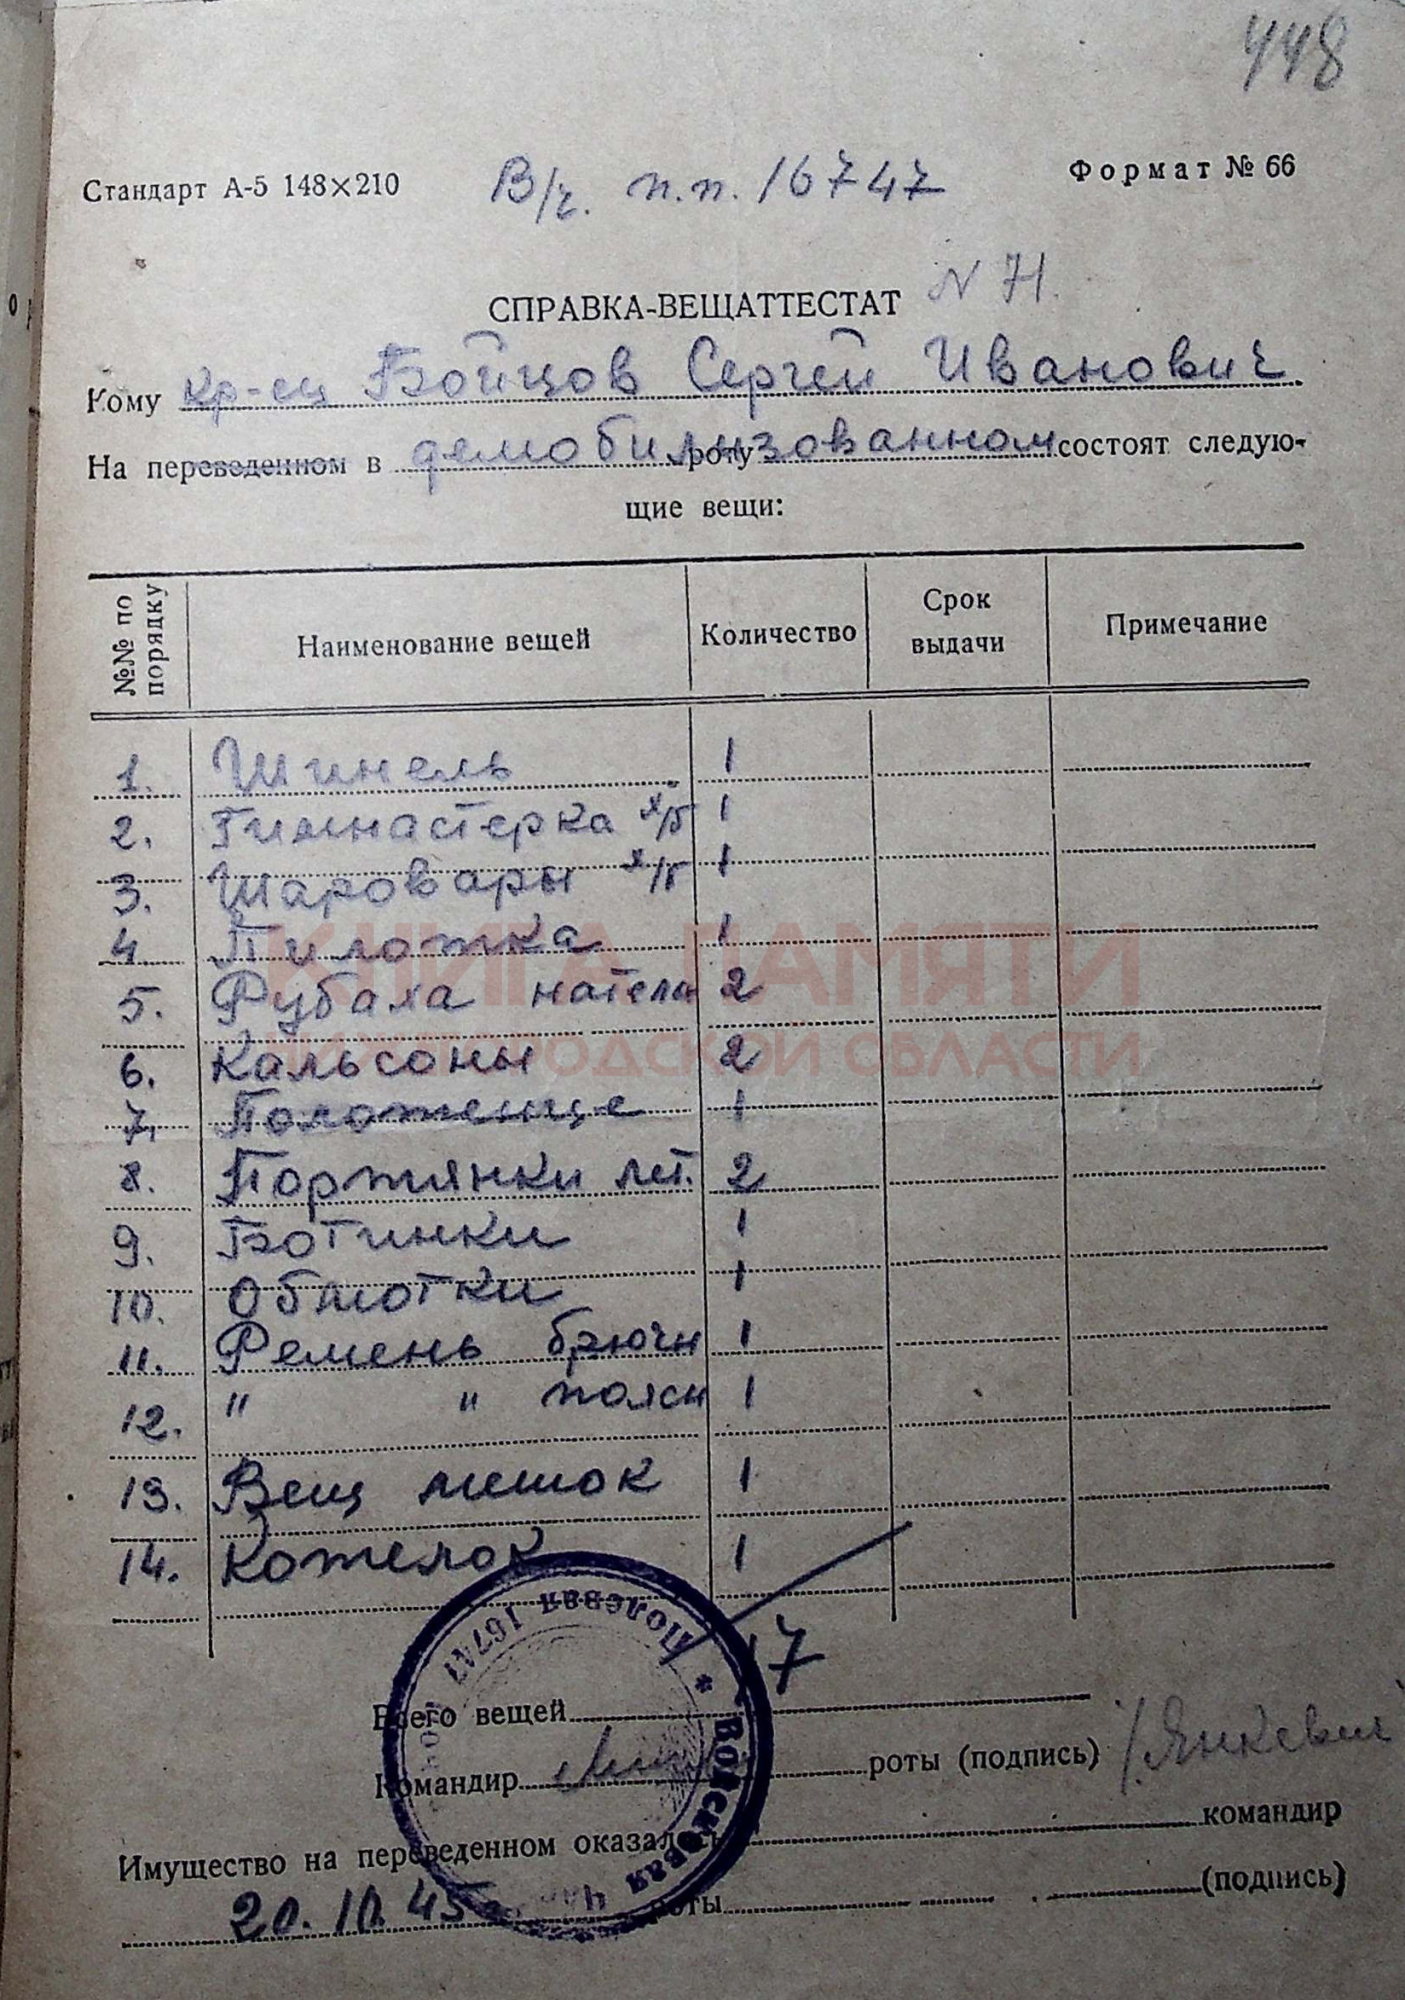 448
Стандарт А-5 148×210 В/ч. п.п. 16747 Формат № 66
СПРАВКА-ВЕЩАТТЕСТАТ N 71.
Кому кр-ец Бойцов Сергей Иванович
На переведенном в демобилизованном роту состоят следую-
щие вещи:
№№ по порядку Наименование вещей Количество Срок выдачи Примечание
1. Шинель 1
2. Гимнастерка х/б 1
3. Шаровары х/б 1
4 Пилотка 1
5. Рубаха нательн 2
6. Кальсоны 2
7. Полотенце 1
8. Портянки лет. 2
9. Ботинки 1
10. Обмотки 1
11. Ремень брючн 1
12. " " поясн 1
13. Вещ мешок 1
14. Котелок 1
КНИГА ПАМЯТИ
НИЖЕГОРОДСКОЙ ОБЛАСТИ
Всего вещей 17
Командир роты (подпись) /Янкевич
Имущество на переведенном оказалось командир
20.10.45 роты (подпись)
* Войсковая часть * Полевая почта 16747